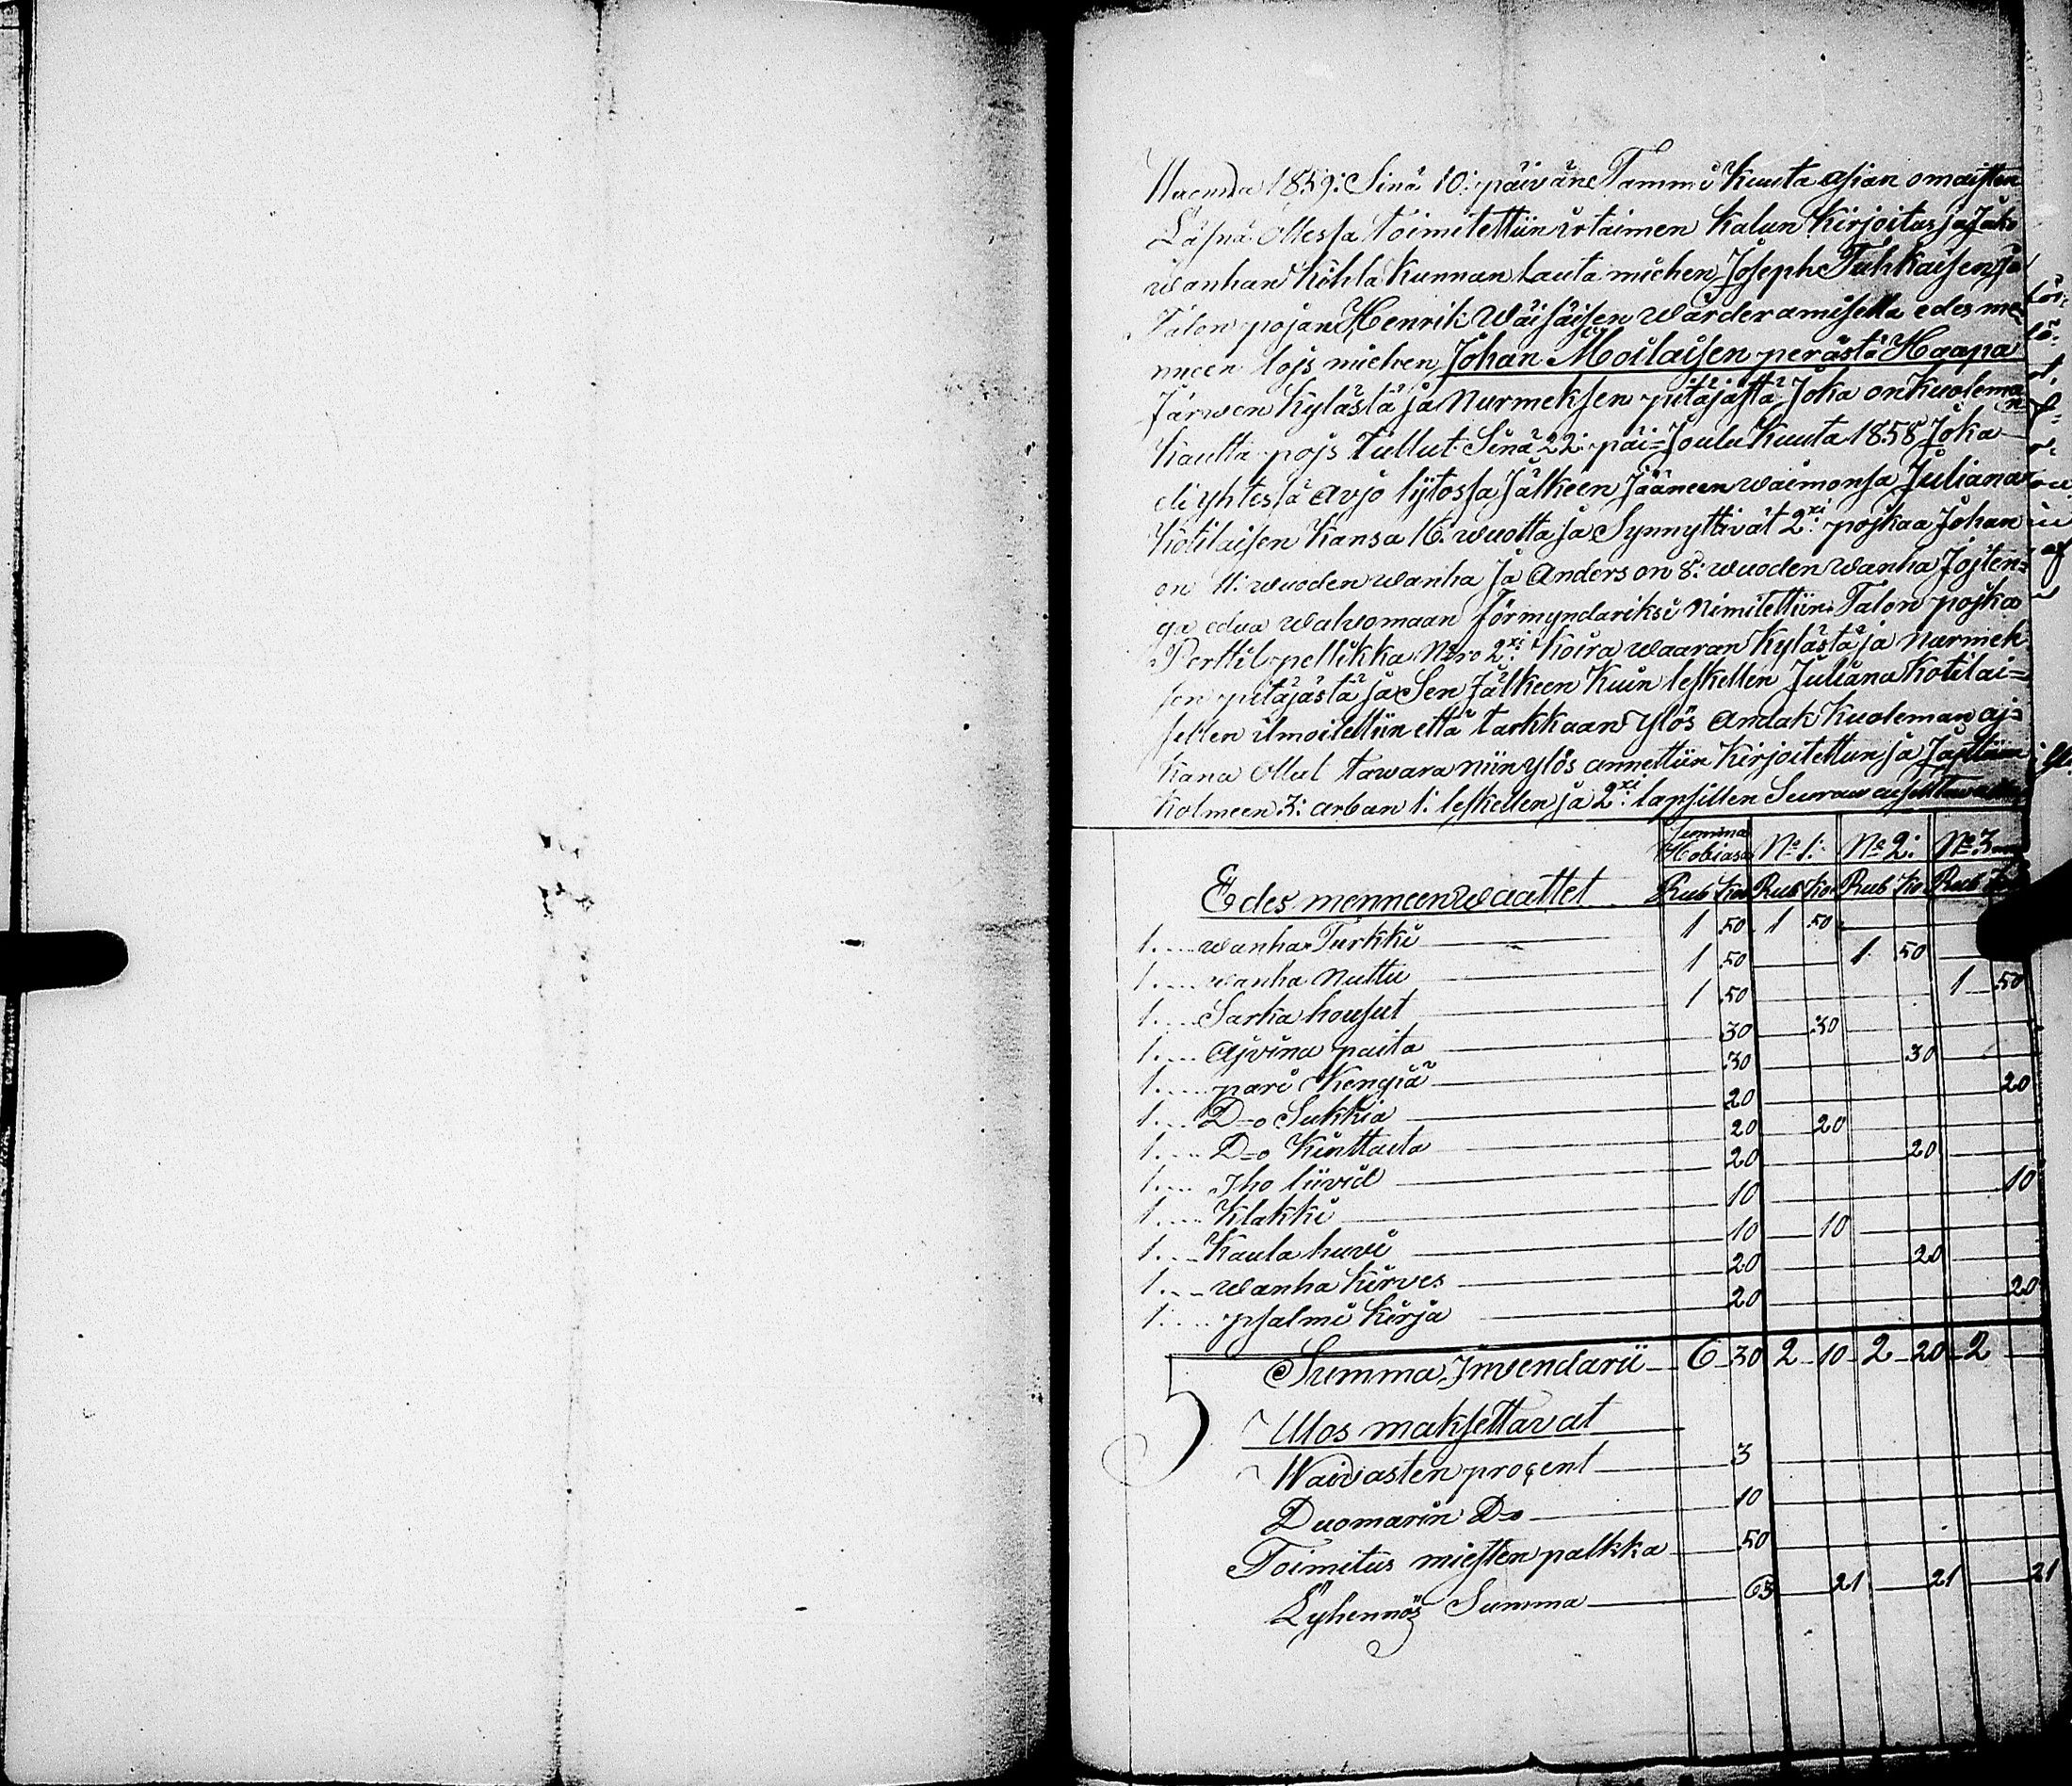 Wuonna 1859: Sinä 10: päivänä Tammi Kuuta asian omaisten
Läsnä Ollessa toimitettiin irtaimen Kalun Kirjoitus ja Jako
Wanhan Kihla Kunnan lauta miehen Joseph Tuhkaisen ja
Talon pojan Henrik Wäisäisen Wärderamisella edes me-
nneen lojs miehen Johan Moilaisen perästä Haapa
Järwen Kylästä ja Nurmeksen pitäjästä Joka on Kuoleman
Kautta pojs Tullut Sinä 22: päi= Joulu Kuuta 1858 Joka
eli yhtessä Avjo lijtossa Jälkeen Jääneen waimonsa Juliana
Kotilaisen Kansa 16: wuotta ja Synnyttivät 2:xi pojkaa Johan
on 11: wuoden wanha Ja Anders on 8: wuoden wanha Jojten=
ga edua walvomaan förmyndariksi Nimitettiin Talon pojka
Perttil pellikka Nro 2:xi Koira waaran Kylästä ja Nurmek
sen pitäjästä ja Sen Jälkeen Kuin leskellen Juliana Kotilai=
sellen ilmoitettiin että tarkkaan Ylös Andak Kuoleman aj=
kana Ollut tawara niin ylös annettiin Kirjoitettun ja Jajttiin
Kolmeen 3: arban 1: leskellen ja 2:xi lapsillen Seuraav
Summa
Hobiasa No 1: No 2: No 3
Edes menneen waattet Rub Ko Rub Ko Rub Ko Rub
1.... wanha Turkki 1 50 1 50
1.... wanha Nuttu 1 50 1 50
1.... Sarka housut 1 50 1 50
1.... Ajvina paita 30 30
1.... pari Kengiä 30 30
1.... D=o Sukkia 20 20
1.... D=o Kinttaita 20 20
1.... Iho liivid 20 20
1.... Klakki 10 10
1... Kaula huvi 10 10
1... Wanha Kirves 20 20
1.... psalmi Kirja 20 20
Summa Invendarii 6 30 2 10 2 20 2
5
Ulos maksettavat
Waivasten procent 3
Duomarin D=o 10
Toimitus miesten palkka 50
Lyhennös Summa 63 21 21 21